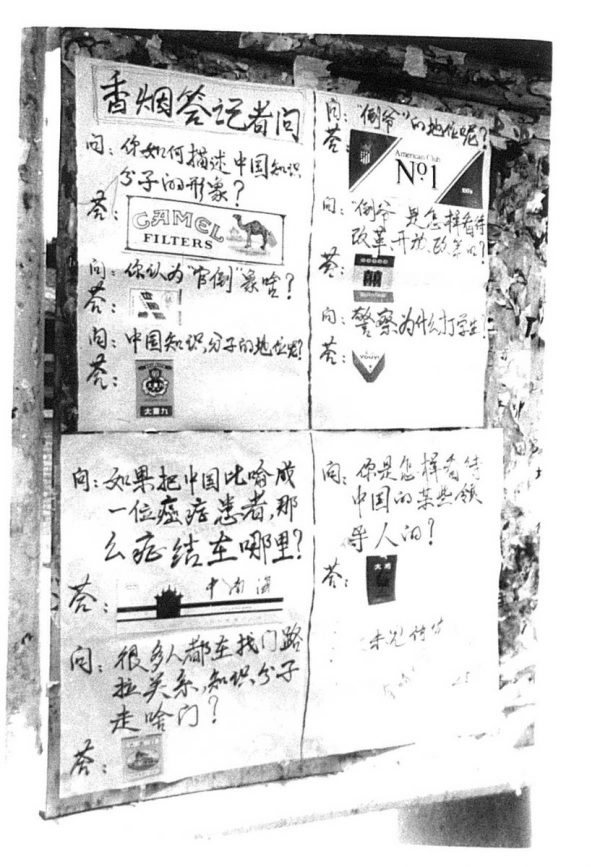 香烟答记者问
问：你如何描述中国知识
分子的形象？
答：
CAMEL
FILTERS
问：你认为“官倒”象啥？
答：
问：中国知识分子的地位呢？
答：
大重九
问：“倒爷”的地位呢？
答：
American Club
Nº1
问：“倒爷”是怎样看待
改革开放
答：
囍
问：警察为什么打学生？
答：
问：如果把中国比喻成
一位癌症患者，那
么症结在哪里？
答：
中南海
问：很多人都在找门路
拉关系，知识分子
走啥门？
答：
问：你是怎样看待
中国的某些领
导人的？
答：